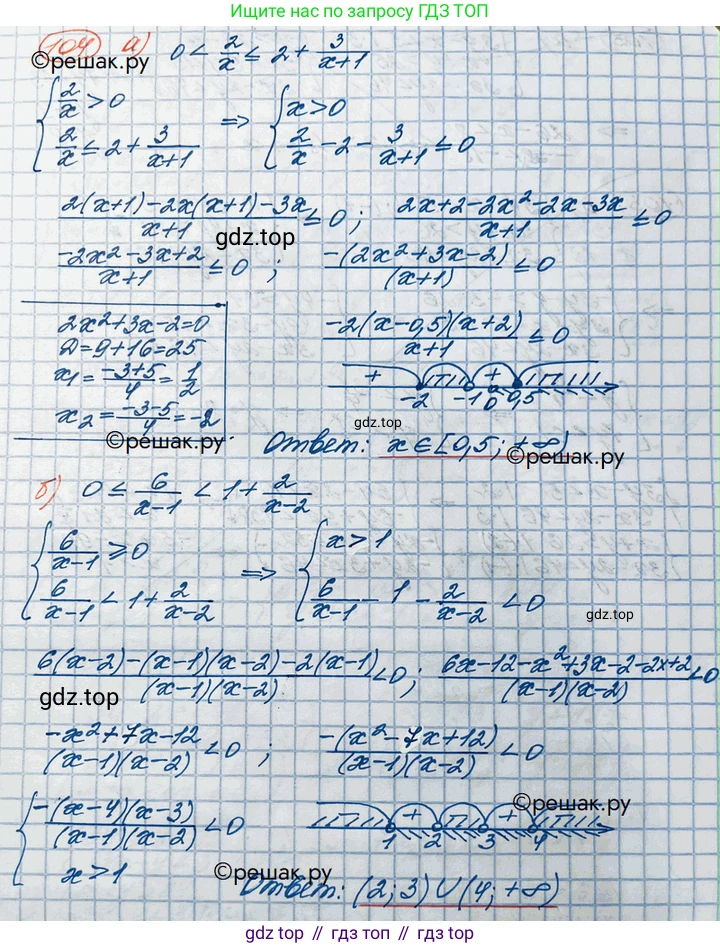 Ищите ответы по запросу ГДЗ ТОП
104 а) 0 < 2/x ≤ 2 + 3/(x+1)
©решак.ру
{ 2/x > 0 ⇒ { x > 0
2/x ≤ 2 + 3/(x+1) 2/x - 2 - 3/(x+1) ≤ 0
(2(x+1) - 2x(x+1) - 3x)/(x+1) ≤ 0 ; (2x+2-2x²-2x-3x)/(x+1) ≤ 0
gdz.top
(-2x²-3x+2)/(x+1) ≤ 0 ; (-(2x²+3x-2))/((x+1)) ≤ 0
2x²+3x-2=0
D=9+16=25
x₁ = (-3+5)/4 = 1/2
x₂ = (-3-5)/4 = -2
(-2(x-0,5)(x+2))/(x+1) ≤ 0
+ +
-2 -1 0 0,5
gdz.top
©решак.ру
Ответ: x ∈ [0,5; +∞)
©решак.ру
б) 0 ≤ 6/(x-1) < 1 + 2/(x-2)
{ 6/(x-1) ≥ 0 ⇒ { x > 1
6/(x-1) < 1 + 2/(x-2) 6/(x-1) - 1 - 2/(x-2) < 0
gdz.top
(6(x-2)-(x-1)(x-2)-2(x-1))/((x-1)(x-2)) < 0 ; (6x-12-x²+3x-2-2x+2)/((x-1)(x-2)) < 0
gdz.top
(-x²+7x-12)/((x-1)(x-2)) < 0 ; (-(x²-7x+12))/((x-1)(x-2)) < 0
{ (-(x-4)(x-3))/((x-1)(x-2)) < 0
x > 1
©решак.ру
+ +
1 2 3 4
©решак.ру
Ответ: (2; 3) ∪ (4; +∞)
gdz.top // гдз.топ // гдз.top